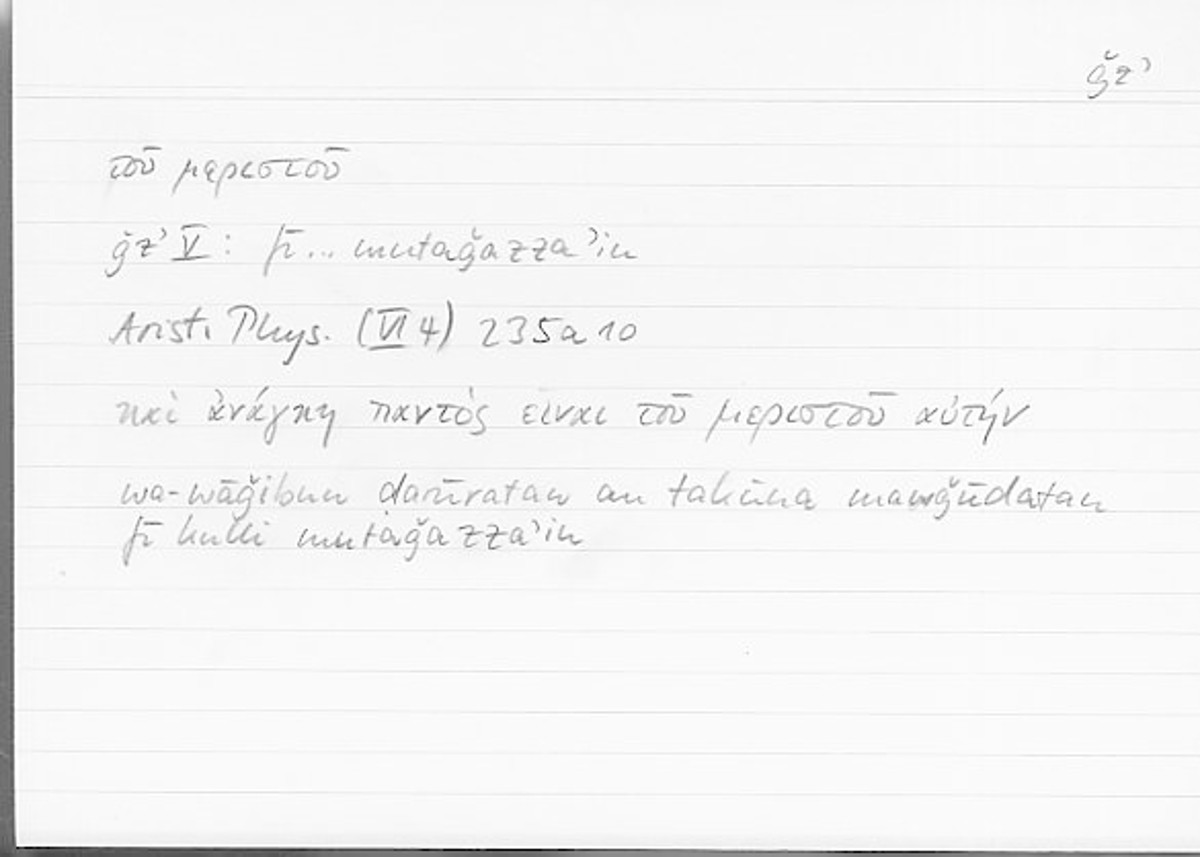 ǧzʾ
τοῦ μεριστοῦ
ǧzʾ V: fī... mutaǧazzaʾin
Arist. Phys. (VI 4) 235a10
καὶ ἀνάγκη παντὸς εἶναι τοῦ μεριστοῦ αὐτήν
wa-wāǧibun ḍarūratan an takūna mawǧūdatan
fī kulli mutaǧazzaʾin